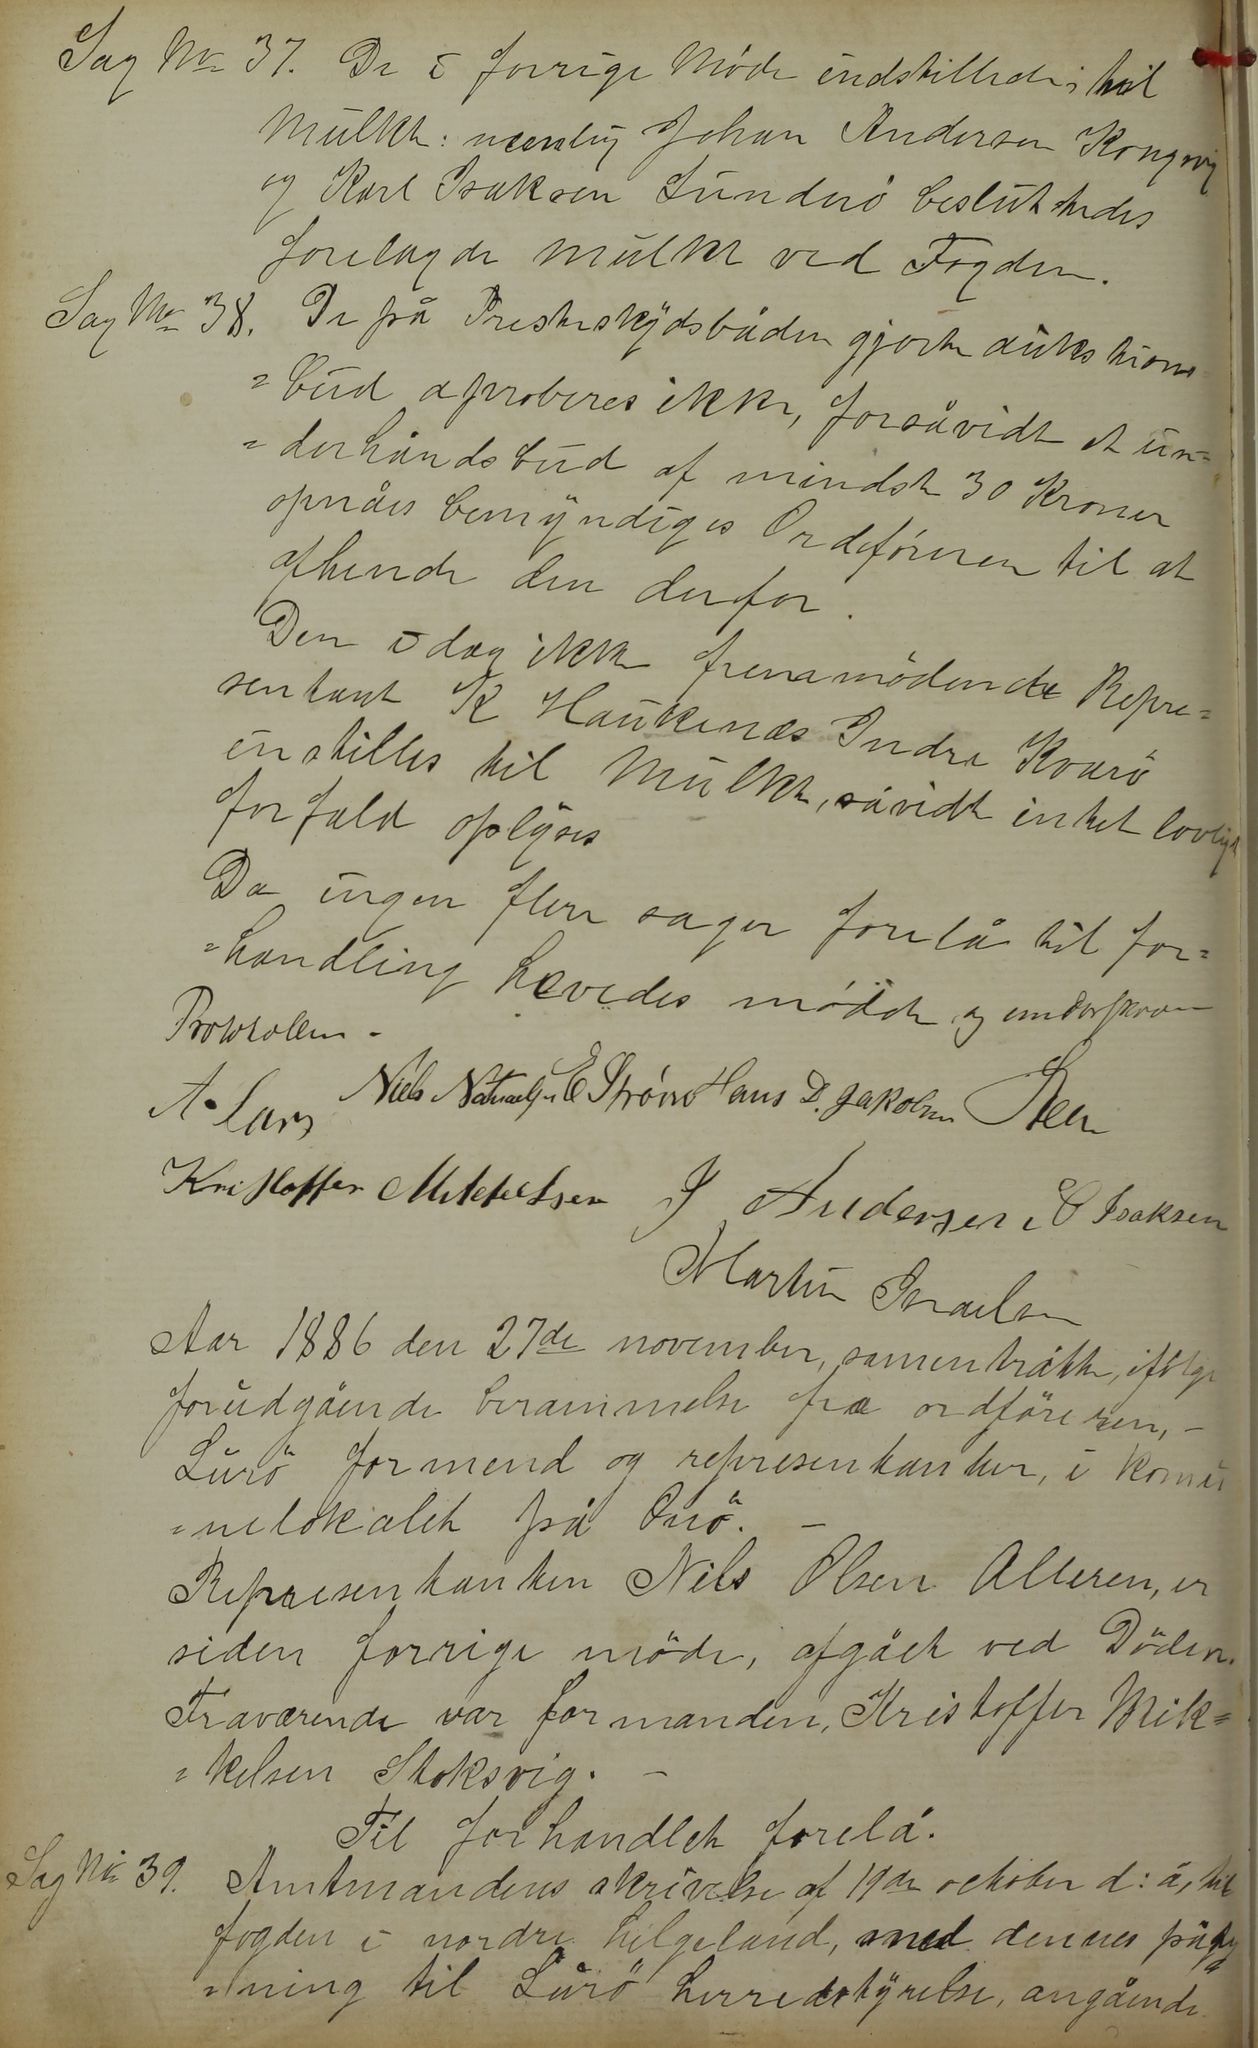 Sag No 37. De i forrige Møde indstillede til
Mulkt: nemlig Johan Andersen Kongsvig
og Karl Isaksen Sunderö besluttedes
forelagde Mulkt ved Fogden.
Sag No 38. De på Presteskydsbåden gjorte auktions
=bud aproberes ikke, forsåvidt et un=
=derhåndsbud af mindst 30 Kroner
opnåes bemyndiges Ordføreren til at
afhende den derfor.
Den idag ikke fremmödende Repre=
sentant K Haukenæs Indre Kvarö
instilles til Mulkt, såvidt intet lovligt
forfald oplyses
Da ingen flere sager forelå til for=
=handling hævedes mödet og underskrev
Protokollen -
A. Lars Niels Natanaelsen E Strøm Hans D. Jakobsen Steen
Kristoffer Mikkelsen J Andersen E Isaksen
Martin Israelsen
Aar 1886 den 27de november, sammentråtte, ifölge
forudgående berammelse fra ordföreren, -
Lurö formend og representanter, i komu
=nelokalet på Onö. -
Representanten Nils Olsen Alteren, er
siden forrige möde, afgået ved Döden.
Fraværende var formanden, Kristoffer Mik=
=kelsen Stoksvig. -
Til forhandlet forelå.
Sag No 39. Amtmandens skrivelse af 19de october d: å, til
fogden i nordre helgeland, med dennes påteg
=ning til Lurö herredstyrelse, angående